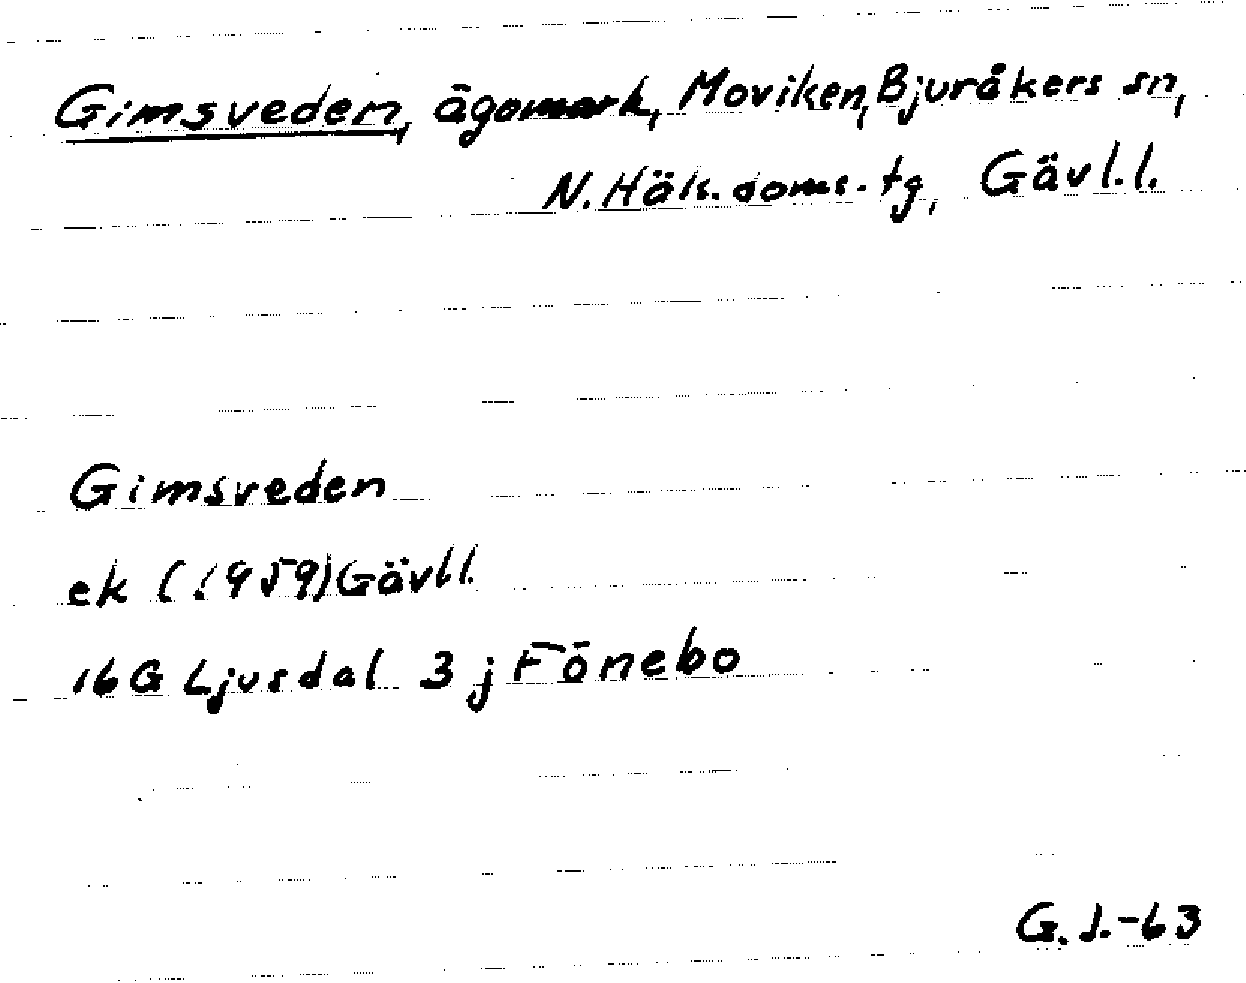 Gimsveden, ägomark, Moviken, Bjuråkers sn,
N. Häls. doms. tg, Gävl. l.
Gimsveden
ek (1959) Gävl l.
16G Ljusdal 3 j Fönebo
G. J. -63